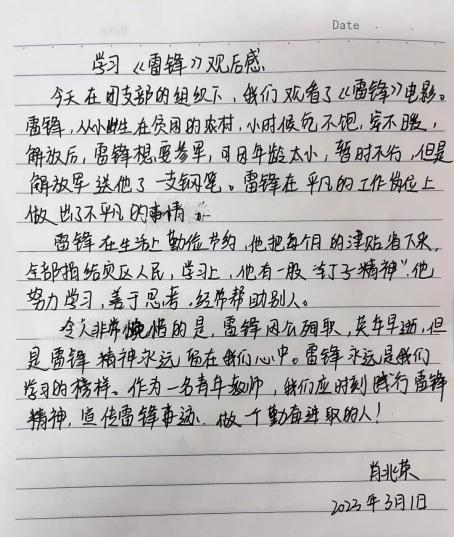 Date
学习《雷锋》观后感
今天在团支部的组织下，我们观看了《雷锋》电影。
雷锋，从小出生在贫困的农村，小时候吃不饱，穿不暖，
解放后，雷锋想要参军，可因年龄太小，暂时不行，但是
解放军送他了一支钢笔。雷锋在平凡的工作岗位上
做出了不平凡的事情。
雷锋在生活上勤俭节约，他把每个月的津贴省下来，
全部捐给灾区人民，学习上，他有一股“钉子精神”，他
努力学习，善于思考，经常帮助别人。
令人非常惋惜的是，雷锋因公殉职，英年早逝，但
是雷锋精神永远留在我们心中。雷锋永远是我们
学习的榜样。作为一名青年教师，我们应时刻践行雷锋
精神，宣传雷锋事迹，做一个勤奋进取的人！
肖兆英
2023年3月1日